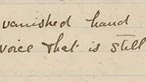 vanished hand
voice that is still